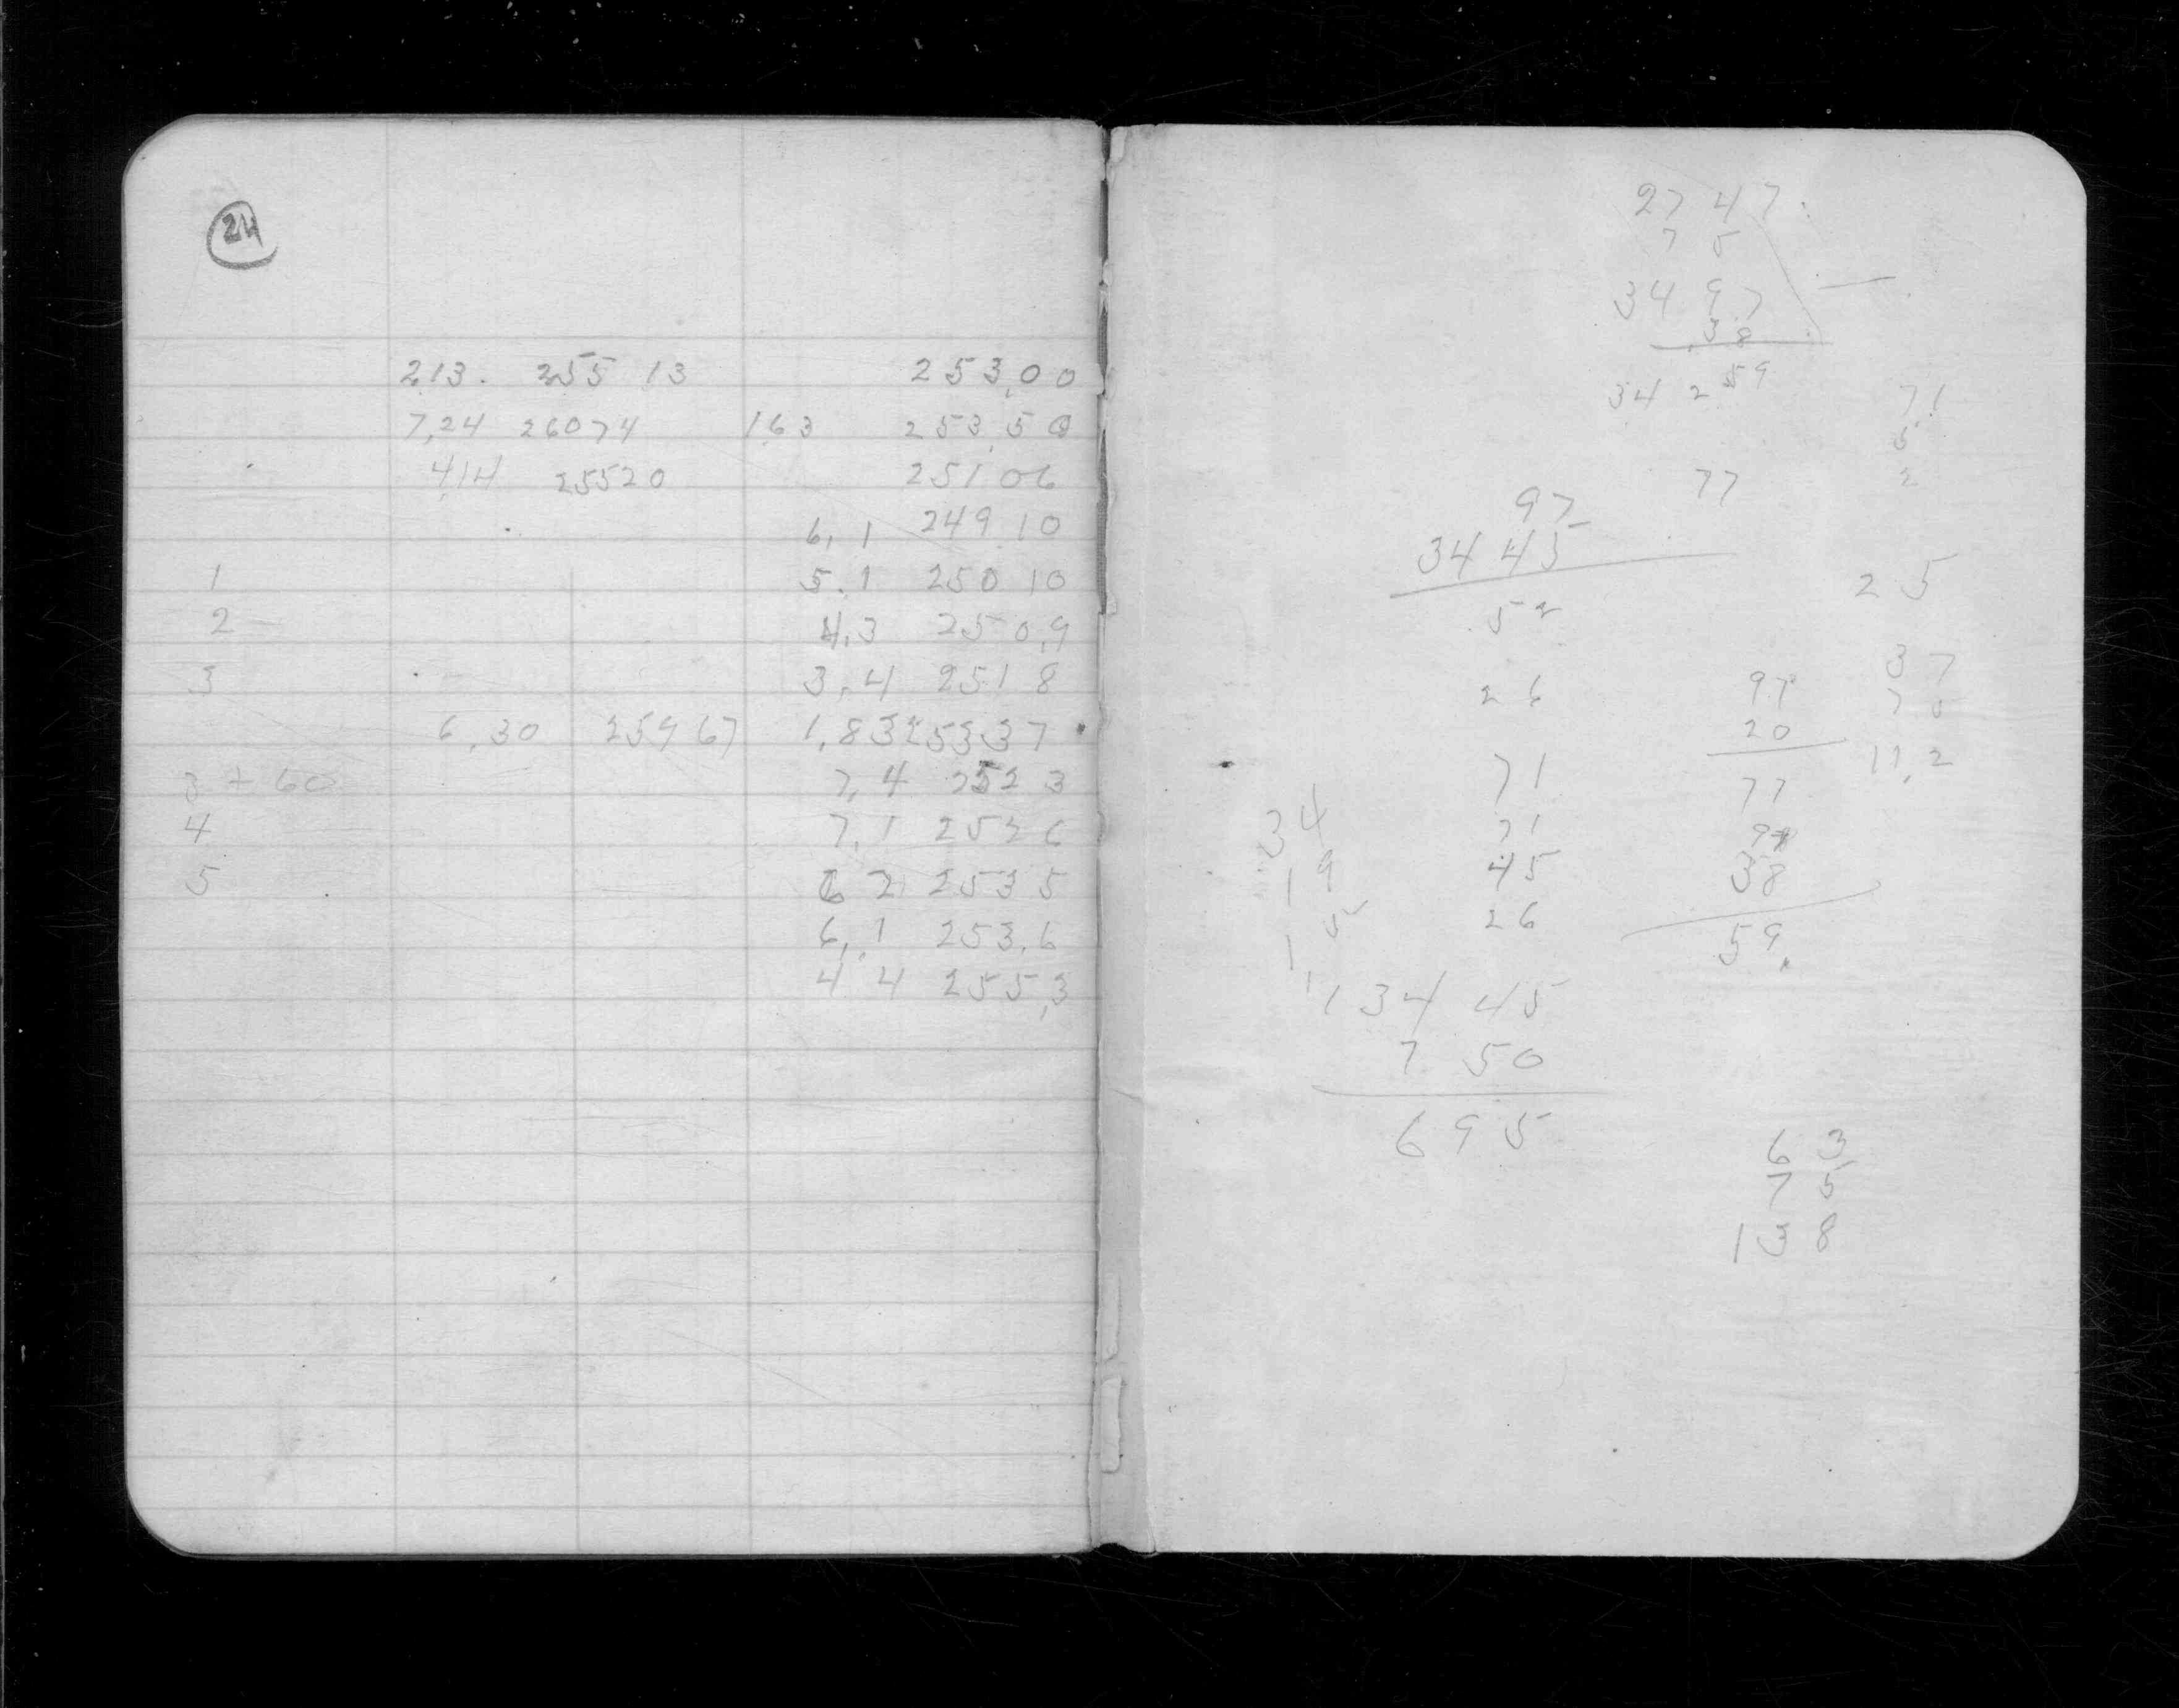 24
2,13. 255 13 253,00
7,24 26074 1,63 253,50
4,14 25520 251 06
6, 1 249 10
1 5.1 250 10
2 4,3 250,9
3 3,4 251 8
6,30 259 67 1,83 253 37
3 + 60 7,4 252 3
4 7,1 252 6
5 6 2 253 5
6,1 253,6
4 4 255,3
27 47
7 5
34 97
38
34 2 59
71
5
2
77
97
34 45
52
25
26
37
7 5
11,2
97
20
77
97
38
59
71
71
45
26
34
19
15
134 45
7 50
6 95
6 3
7 5
13 8